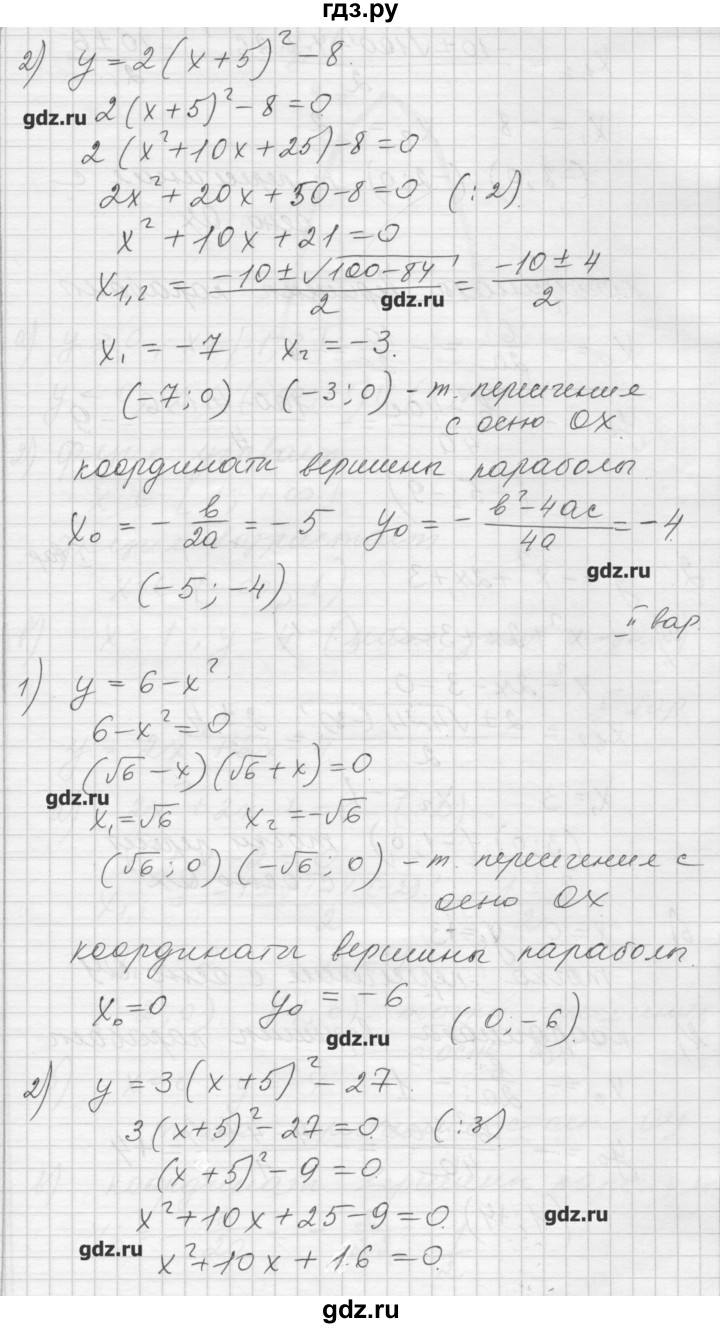 гдз.ру
2) y = 2(x+5)² – 8.
gdz.ru 2(x+5)² – 8 = 0
2(x²+10x+25) – 8 = 0
2x² + 20x + 50 – 8 = 0 (:2)
x² + 10x + 21 = 0
x₁,₂ = (–10 ± √(100–84))/2 = (–10 ± 4)/2
gdz.ru
x₁ = –7 x₂ = –3.
(–7; 0) (–3; 0) – т. пересечения
с осью OX.
координаты вершины параболы
x₀ = – в/2a = –5 y₀ = – (в²–4ac)/4a = –4
gdz.ru
(–5; –4)
II вар.
1) y = 6 – x²
6 – x² = 0
(√6 – x)(√6 + x) = 0
gdz.ru
x₁ = √6 x₂ = –√6
(√6; 0) (–√6; 0) – т. пересечения с
осью OX
координаты вершины параболы.
x₀ = 0 y₀ = –6 (0; –6).
gdz.ru
2) y = 3(x+5)² – 27.
3(x+5)² – 27 = 0 (:3)
(x+5)² – 9 = 0
x² + 10x + 25 – 9 = 0. gdz.ru
gdz.ru x² + 10x + 16 = 0.
gdz.ru